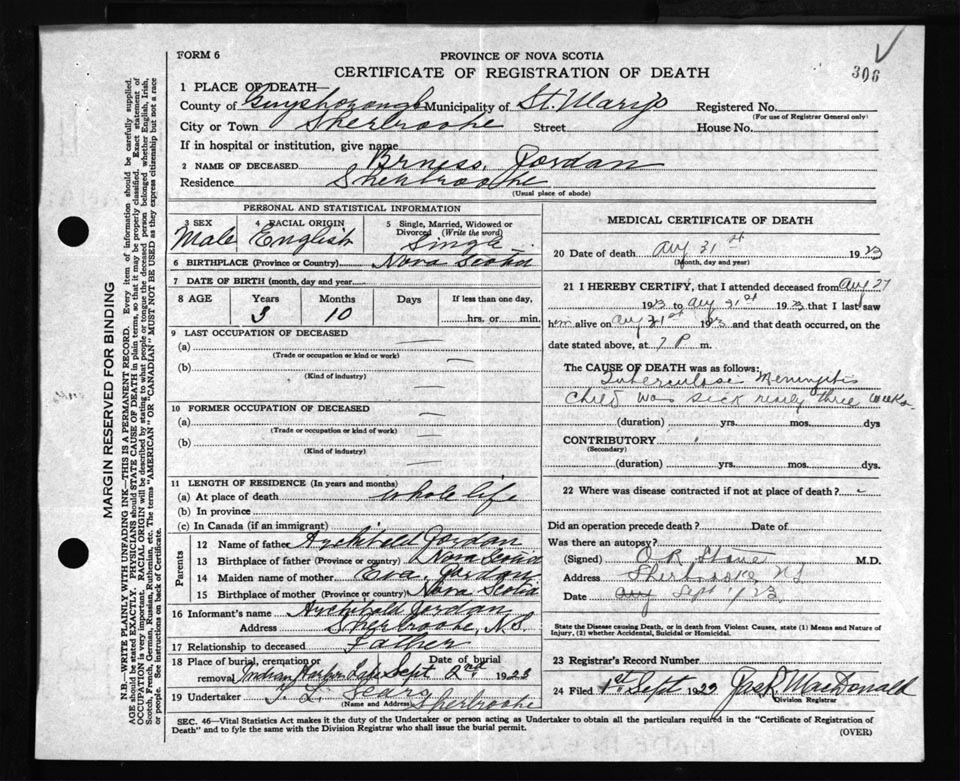 FORM 6
PROVINCE OF NOVA SCOTIA
306
CERTIFICATE OF REGISTRATION OF DEATH
1 PLACE OF DEATH—
County of Guyshorough Municipality of St. Mary's Registered No.
(For use of Registrar General only)
City or Town Sherbrooke Street House No.
If in hospital or institution, give name
2 NAME OF DECEASED Brness, Jordan
Residence Sherbrooke
(Usual place of abode)
PERSONAL AND STATISTICAL INFORMATION
3 SEX 4 RACIAL ORIGIN 5 Single, Married, Widowed or Divorced (Write the word)
Male English Single
6 BIRTHPLACE (Province or Country) Nova Scotia
7 DATE OF BIRTH (month, day and year)
8 AGE Years Months Days If less than one day,
3 10 hrs. or min.
9 LAST OCCUPATION OF DECEASED
(a) —
(Trade or occupation or kind or work)
(b) —
(Kind of industry)
10 FORMER OCCUPATION OF DECEASED
(a) —
(Trade or occupation or kind of work)
(b) —
(Kind of industry)
11 LENGTH OF RESIDENCE (In years and months)
(a) At place of death whole life
(b) In province
(c) In Canada (if an immigrant)
Parents
12 Name of father Archibald Jordan
13 Birthplace of father (Province or country) Nova Scotia
14 Maiden name of mother Eva, Jordan
15 Birthplace of mother (Province or country) Nova Scotia
16 Informant's name Archibald Jordan
Address Sherbrooke, N.S.
17 Relationship to deceased Father
18 Place of burial, cremation or removal Indian Harbor Lake Date of burial Sept 2nd 1923
19 Undertaker
(Name and Address) Sherbrooke
MEDICAL CERTIFICATE OF DEATH
20 Date of death Aug 31st 1923
(Month, day and year)
21 I HEREBY CERTIFY, that I attended deceased from Aug 27
1923 to Aug 31st 1923 that I last saw
him alive on Aug 31st 1923 and that death occurred, on the
date stated above, at 7 P m.
The CAUSE OF DEATH was as follows:
Tuberculosis Meningitis
Child was sick nearly three weeks.
(duration) yrs. mos. dys
CONTRIBUTORY
(Secondary)
(duration) yrs. mos. dys.
22 Where was disease contracted if not at place of death? -
Did an operation precede death? Date of
Was there an autopsy?
(Signed) O R Stone M.D.
Address Sherbrooke, NS
Date Sept 1/23
State the Disease causing Death, or in death from Violent Causes, state (1) Means and Nature of
Injury, (2) whether Accidental, Suicidal or Homicidal.
23 Registrar's Record Number
24 Filed 1st Sept 1923 Jas. R. MacDonald
Division Registrar
SEC. 46—Vital Statistics Act makes it the duty of the Undertaker or person acting as Undertaker to obtain all the particulars required in the "Certificate of Registration of
Death" and to fyle the same with the Division Registrar who shall issue the burial permit. (OVER)
MARGIN RESERVED FOR BINDING
N.B.—WRITE PLAINLY WITH UNFADING INK—THIS IS A PERMANENT RECORD. Every item of information should be carefully supplied.
AGE should be stated EXACTLY. PHYSICIANS should STATE CAUSE OF DEATH in plain terms, so that it may be properly classified. Exact statement of
OCCUPATION is very important. RACIAL ORIGIN will be described by stating to what people or tongue the deceased person belonged whether English, Irish,
Scotch, French, German, Russian, Ruthenian, etc. The terms "AMERICAN" OR "CANADIAN" MUST NOT BE USED as they express citizenship but not a race
or people. See instructions on back of Certificate.